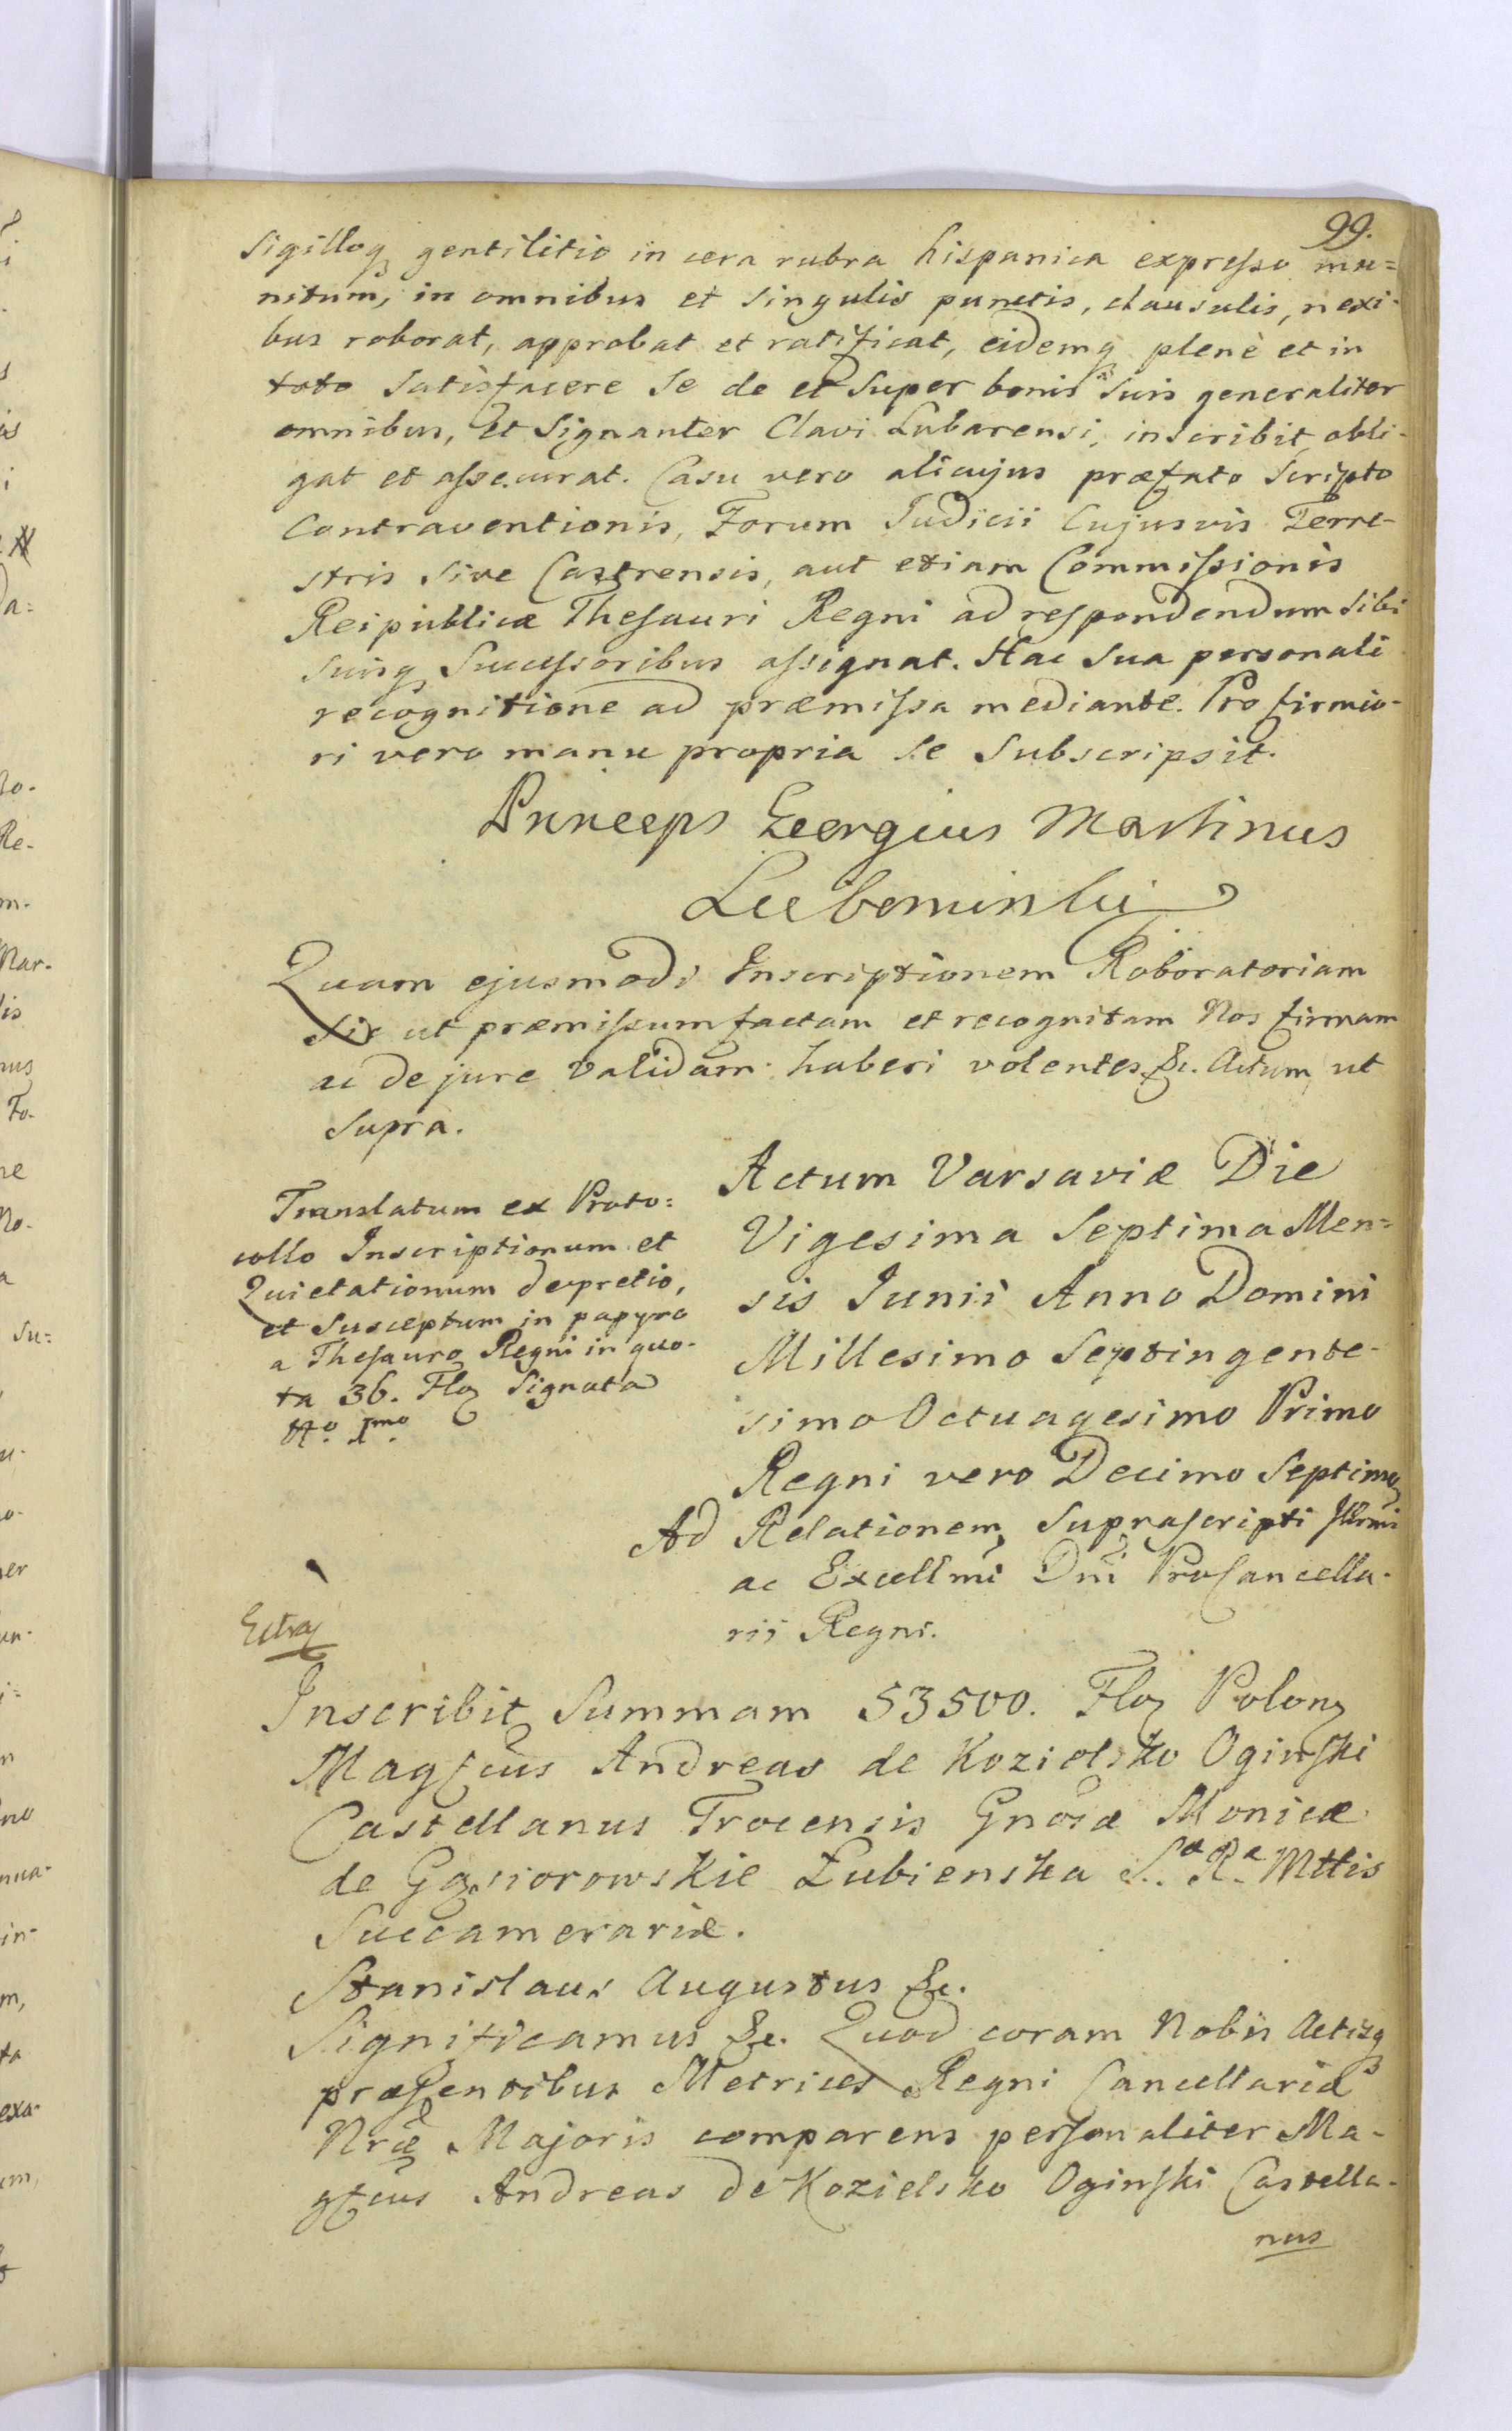 99.
Sigilloq gentilitio in cera rubra hispanica expresso mu=
nitum, in omnibus et singulis punctis, clausulis, nexi-
bus roborat, approbat et ratificat, eidemq plenè et in
toto satisfacere se de et super bonis suis generaliter
omnibus, et signanter Clavi Lubarensi, inscribit, obli-
gat et assecurat. Casu vero alicujus præfato Scripto
Contraventionis, Forum Judicii Cujusvis Terre-
stris sive Castrensis, aut etiam Commissionis
Reipublicæ Thesauri Regni ad respondendum sibi
suisq Successoribus assignat. Hac sua personali
recognitione ad præmissa mediante. Pro firmio-
ri vero manu propria se subscripsit.
Princeps Georgius Martinus
Lubomirski
Quam ejusmodi Inscriptionem Roboratoriam
sic ut præmissum factam et recognitam Nos firmam
ac de jure validam haberi volentes &c. Actum ut
supra.
Translatum ex Proto:
collo Inscriptionum et
Quietationum depretio,
et Susceptum in papyro
a Thesauro Regni in quo-
ta 36. Flo Signata
No. 1mo.
Actum Varsaviæ Die
Vigesima Septima Men=
sis Junii Anno Domini
Millesimo Septingente-
simo Octuagesimo Primo
Regni vero Decimo Septimo
Ad Relationem Suprascripti Illrmi
ac Excellmi Dni ProCancella-
rii Regni.
Inscribit Summam 53500. Flo Polon
Magfcus Andreas de Kozielsko Oginski
Castellanus Trocensis Gnosæ Monicæ
de Gąsiorowskie Łubienska S.æ R.æ Mttis
Succamerariæ.
Stanislaus Augustus &c.
Significamus &c. Quod coram Nobis Actisq
præsentibus Metrices Regni Cancellariæ
Nræ Majoris comparens personaliter Ma-
gfcus Andreas de Kozielsko Oginski Castella-
nus